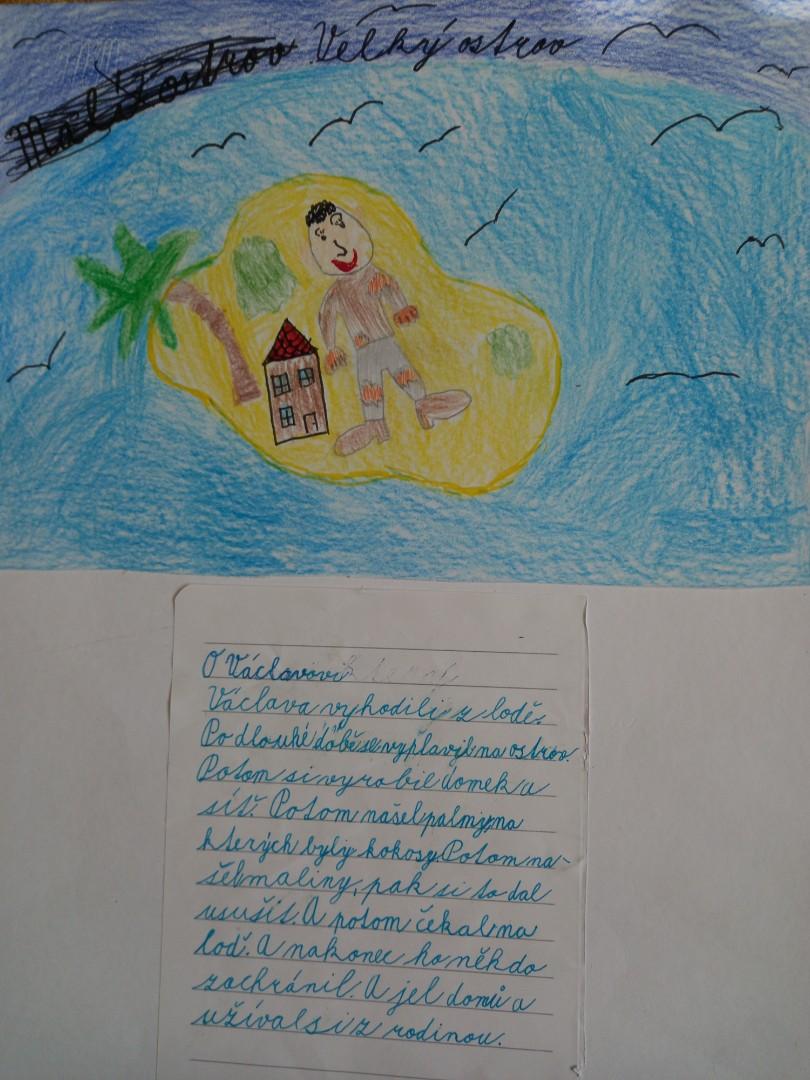 Malý ostrov Velký ostrov
O Václavovi
Václava vyhodili z lodě.
Po dlouhé době se vyplavil na ostrov.
Potom si vyrobil domek a
síť. Potom našel palmy, na
kterých byly kokosy. Potom na-
šel maliny, pak si to dal
usušit. A potom čekal na
loď. A nakonec ho někdo
zachránil. A jel domů a
užíval si z rodinou.